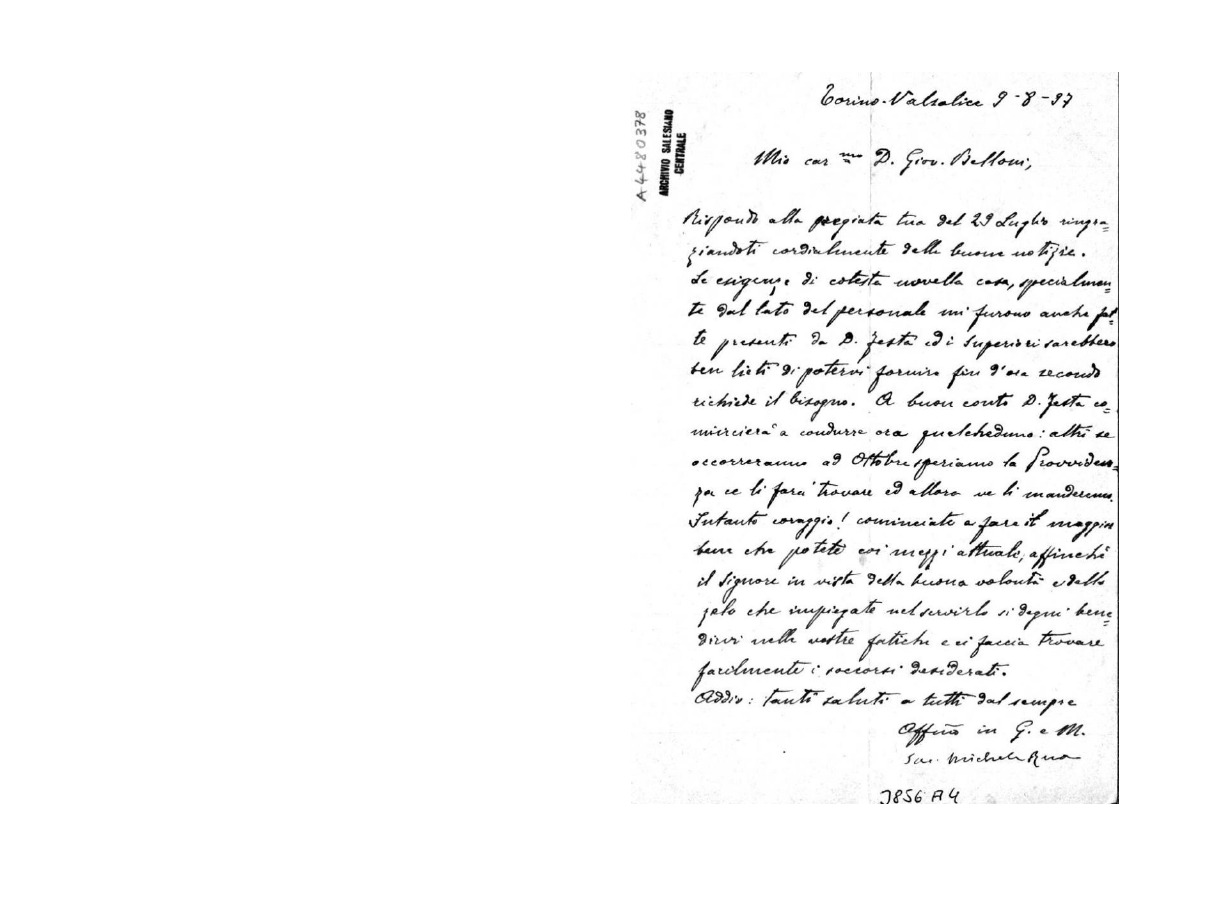 Torino-Valsalice 9-8-97
A4480378
ARCHIVIO SALESIANO
CENTRALE
Mio car.mo D. Giov. Belloni,
Rispondo alla pregiata tua del 29 Luglio ringra=
ziandoti cordialmente delle buone notizie.
Le esigenze di cotesta novella casa, specialmen=
te dal lato del personale mi furono anche fat=
te presenti da D. Festa ed i Superiori sarebbero
ben lieti di potervi fornire fin d'ora secondo
richiede il bisogno. A buon conto D. Festa co=
mincierà a condurre ora quelcheduno: altri se
occorreranno ad Ottobre speriamo la Provviden=
za ce li farà trovare ed allora ve li manderemo.
Intanto coraggio! cominciate a fare il maggior
bene che potete coi mezzi attuale, affinchè
il Signore in vista della buona volontà e dello
zelo che impiegate nel servirlo si degni bene=
dirvi nelle vostre fatiche e ci faccia trovare
facilmente i soccorsi desiderati.
Addio: tanti saluti a tutti dal sempre
Aff.mo in G. e M.
Sac. Michele Rua
J856 A4